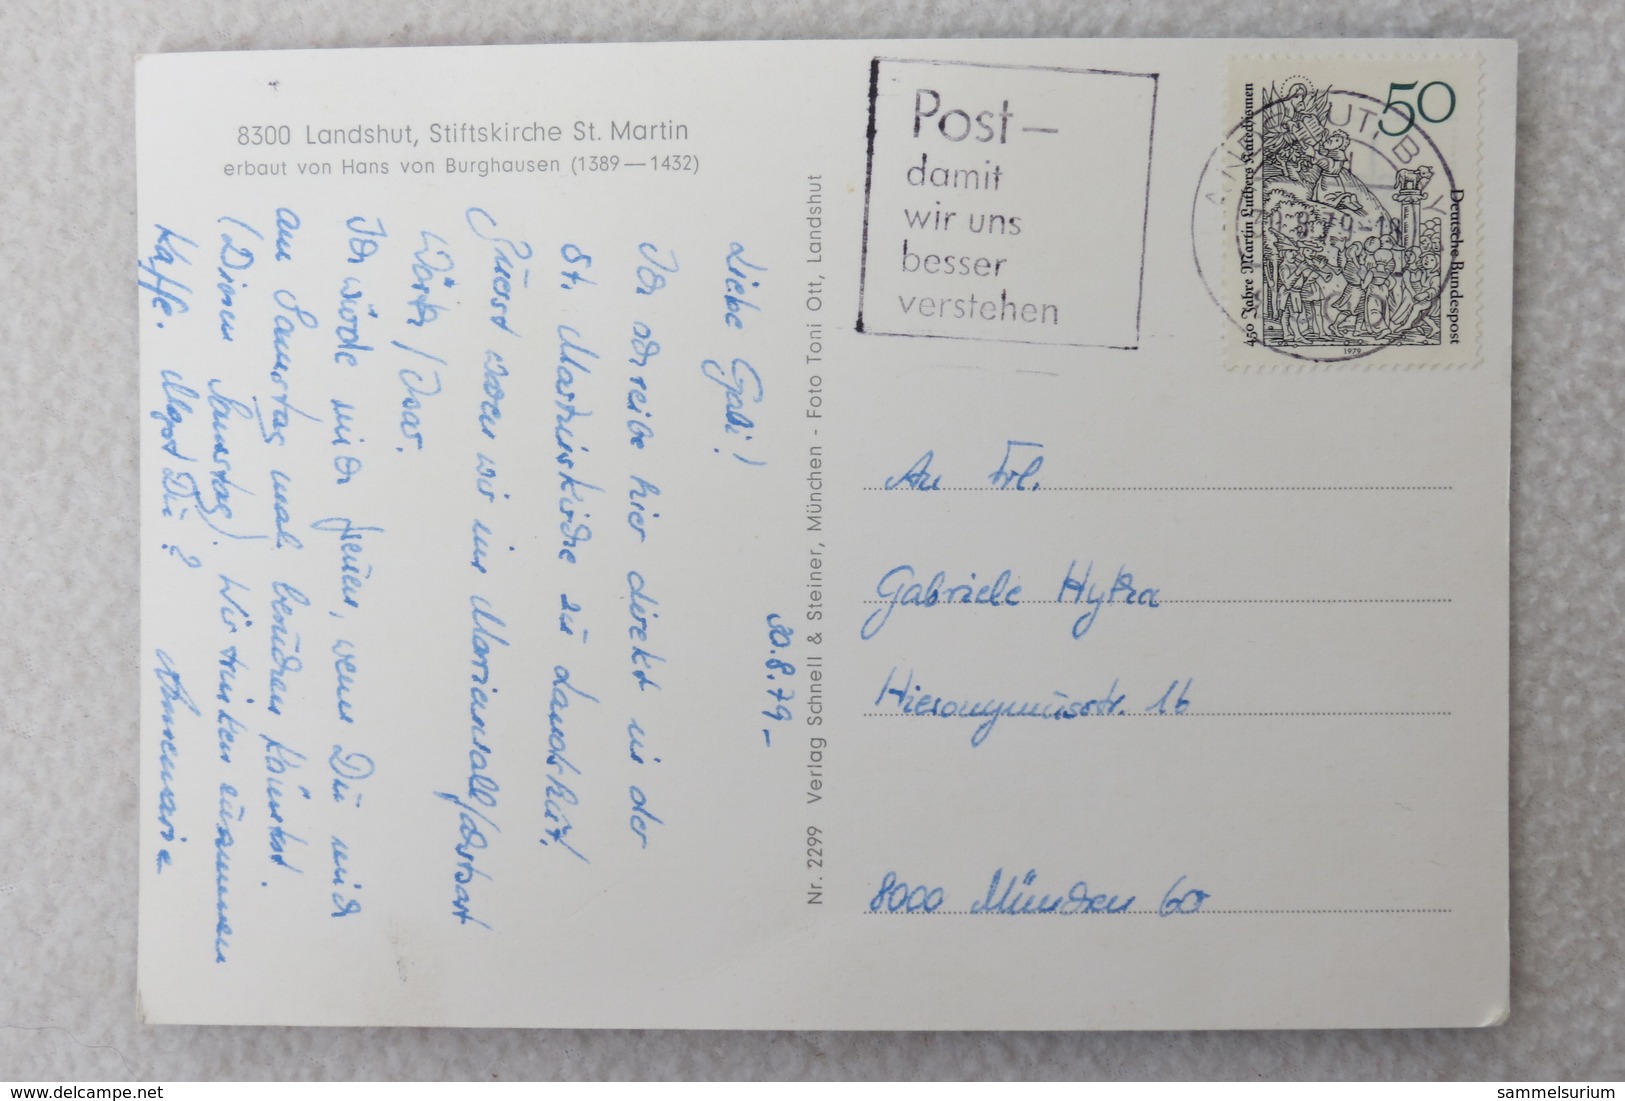 8300 Landshut, Stiftskirche St. Martin
erbaut von Hans von Burghausen (1389—1432)
Post—
damit
wir uns
besser
verstehen
50
450 Jahre Martin Luthers Katechismen
Deutsche Bundespost
1979
30.8.79-
Liebe Gabi!
Ich schreibe hier direkt in der
St. Martinskirche zu Landshut.
Zuerst waren wir in
Wörth/Isar.
Ich würde mich freuen, wenn Du mich
am Samstag mal besuchen könntest.
(Diesen Samstag). Wir trinken zusammen
Kaffe. Magst Du? Annemarie
Nr. 2299 Verlag Schnell & Steiner, München - Foto Toni Ott, Landshut
An Frl.
Gabriele Hytra
Hieronymusstr. 16
8000 München 60
sammelsurium
www.delcampe.net